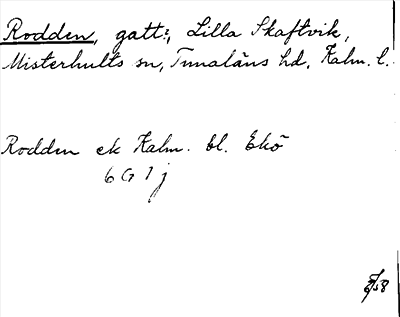 Rodden, gatt:, Lilla Skaftvik,
Misterhults sn, Tunaläns hd, Kalm. l.
Rodden ek Kalm. bl. Ekö
6 G 1 j